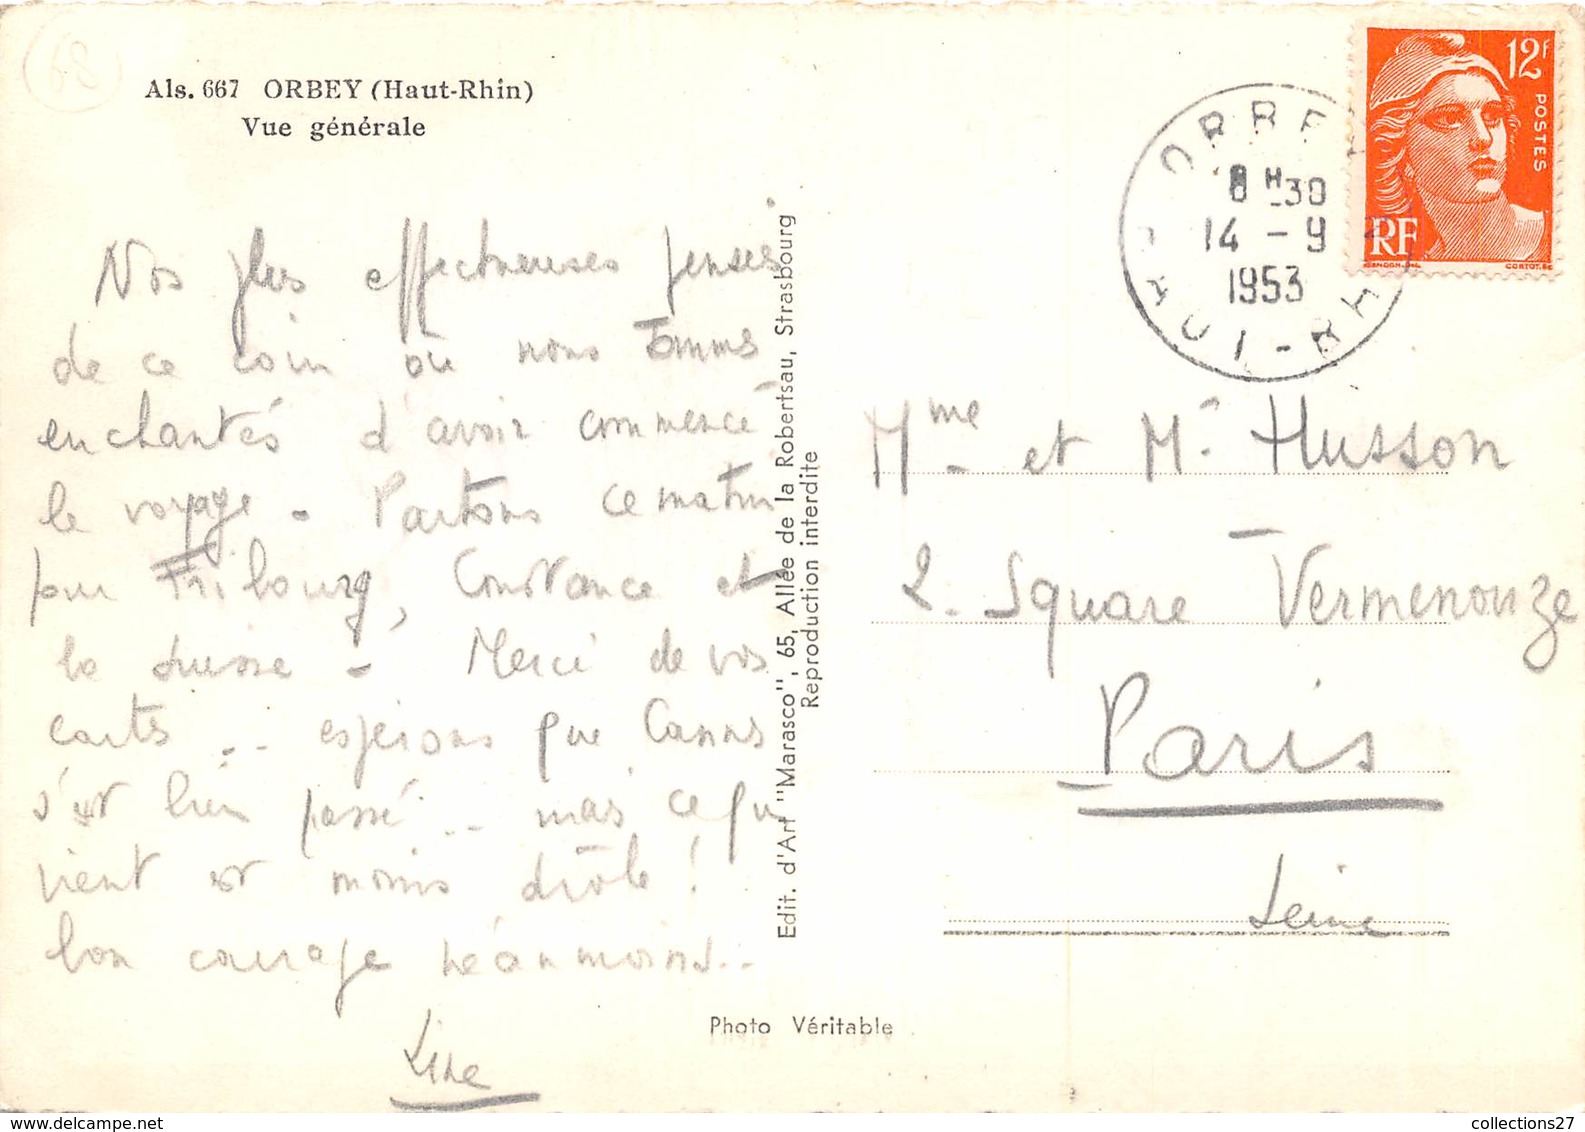 68
Als. 667 ORBEY (Haut-Rhin)
Vue générale
Nos plus affectueuses pensées
de ce coin où nous sommes
enchantés d'avoir commencé
le voyage - Partons ce matin
pour Fribourg, Constance et
la Suisse - Merci de vos
cartes .. espérons que Cannes
s'est bien passé .. mais ce qui
vient est moins drôle !
bon courage néanmoins ..
Line
Edit. d'Art "Marasco", 65, Allée de la Robertsau, Strasbourg
Reproduction interdite
Photo Véritable
ORBEY
8 H 30
14 - 9
1953
HUT-RH
12F
POSTES
RF
GANDON.DEL
CORTOT.SC
Mme et Mr Husson
2. Square Vermenouze
Paris
Seine
collections27